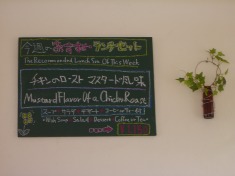 今週のおすすめランチセット
The Recommended Lunch Set Of This Week
チキンのロースト マスタード風味
Mustard Flavor Of a Chicken Roast
スープ・サラダ・デザート・コーヒー
Salad Desert Coffee or Tea